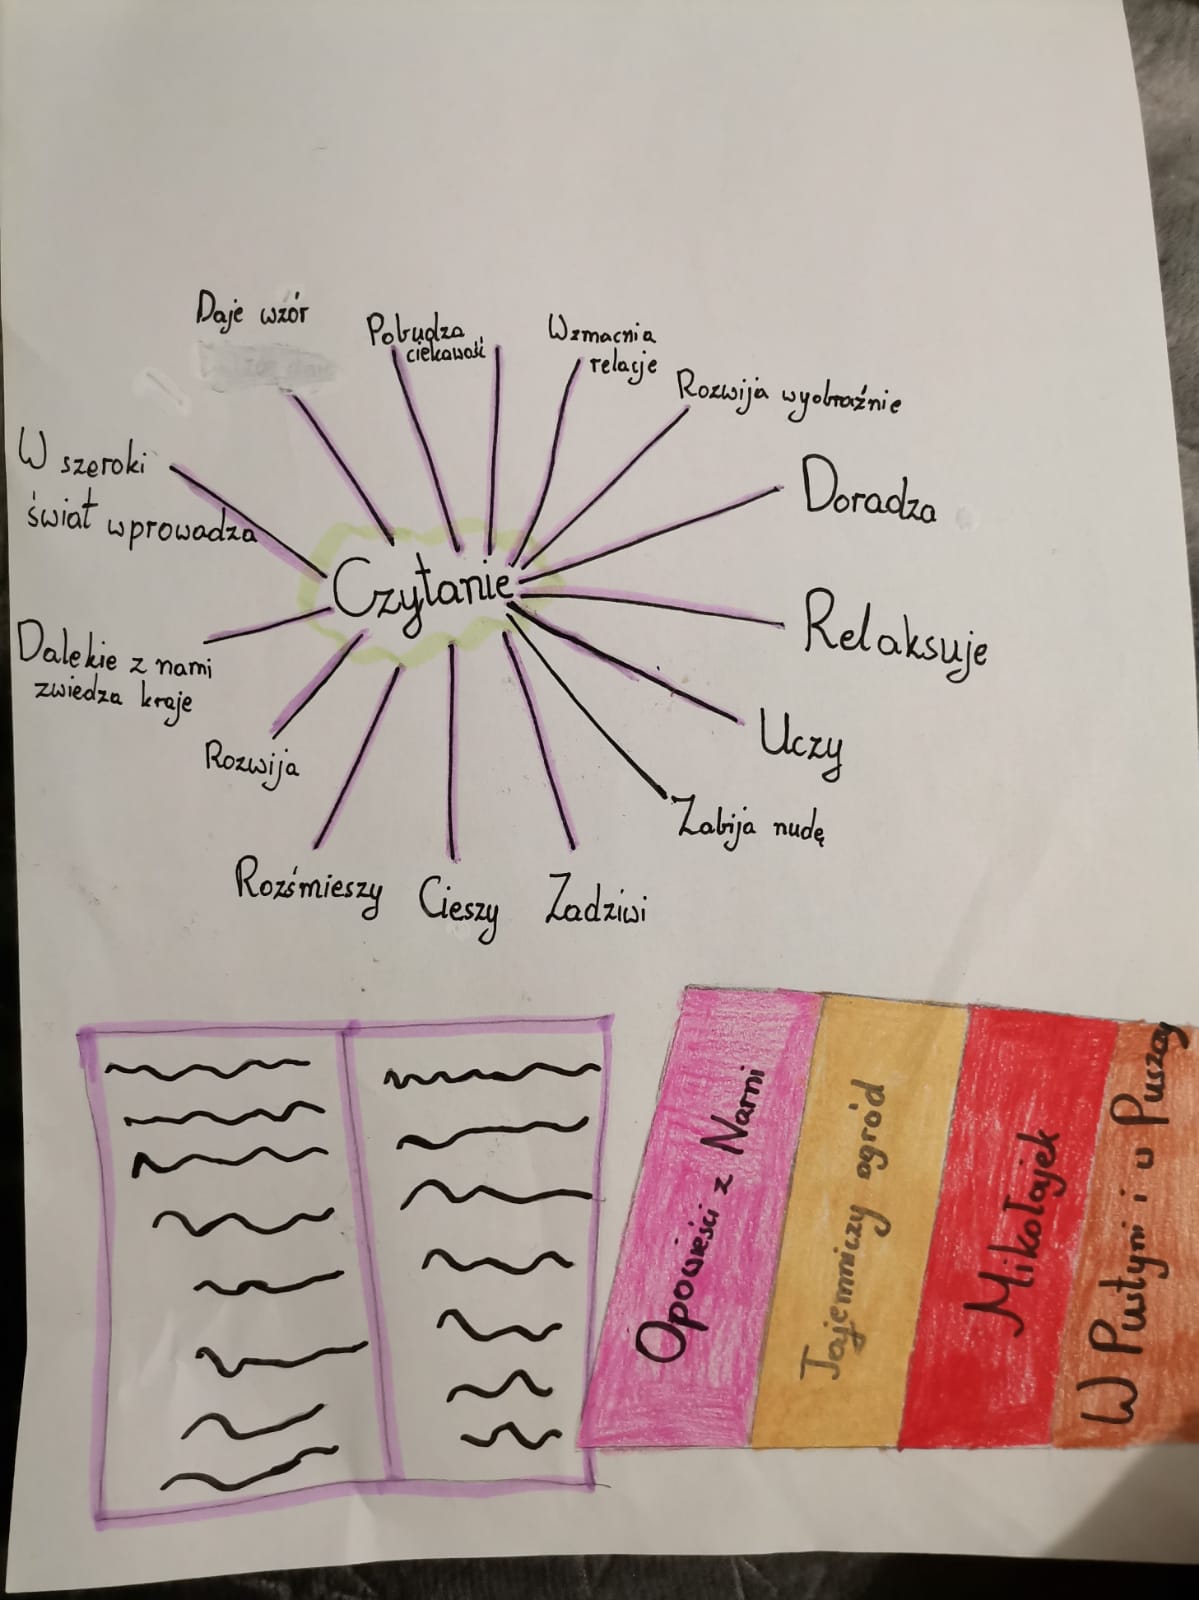 Daje wzór
Pobudza
ciekawość
Wzmacnia
relacje
Rozwija wyobraźnie
W szeroki
świat wprowadza
Doradza
Czytanie
Relaksuje
Dalekie z nami
zwiedza kraje
Uczy
Rozwija
Zabija nudę
Rozśmieszy
Cieszy
Zadziwi
Opowieści z Narni
Tajemniczy ogród
Mikołajek
W Pustyni i w Puszczy